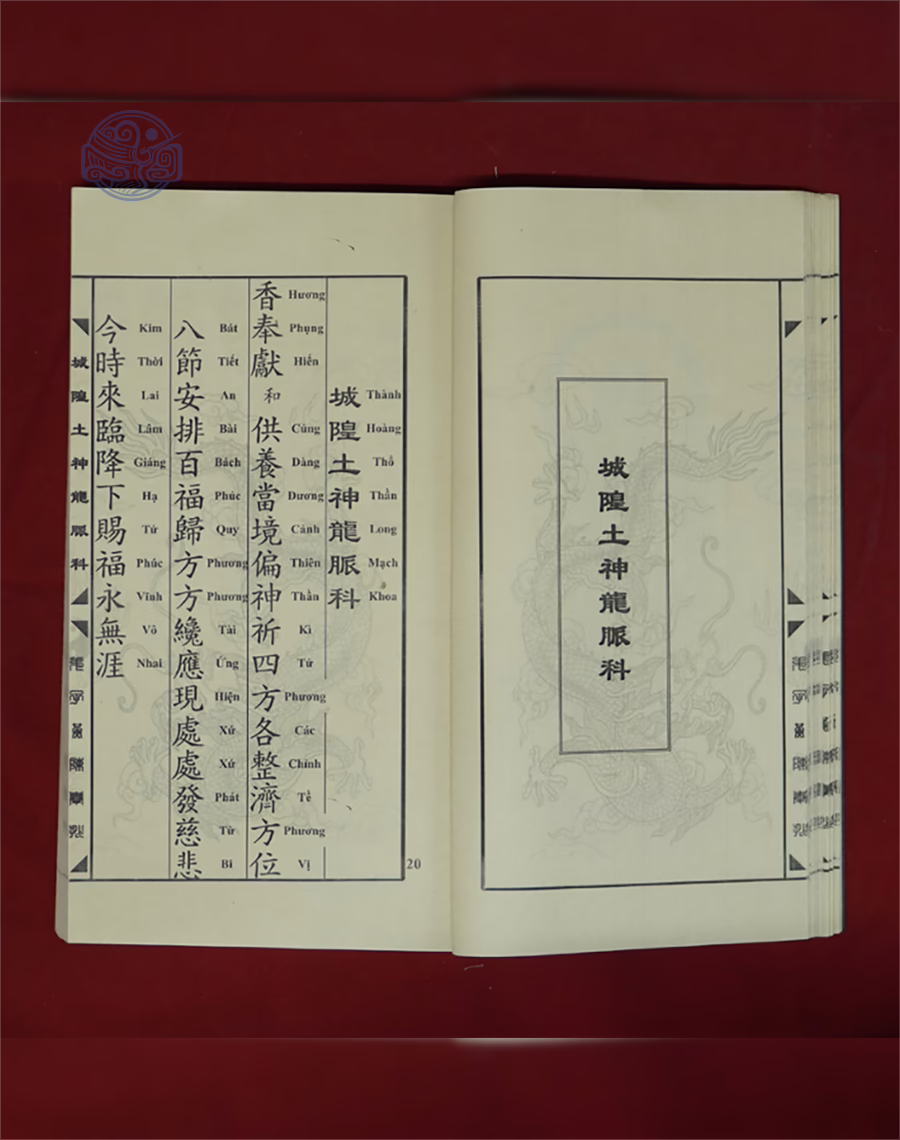 城隍土神龍脈科
城隍土神龍脈科
Thành Hoàng Thổ Thần Long Mạch Khoa
香奉獻和供養當境偏神祈四方各整濟方位
Hương Phụng Hiến Cúng Dàng Dương Cảnh Thiên Thần Kì Tứ Phương Các Chỉnh Tề Phương Vị
八節安排百福歸方方纔應現處處發慈悲
Bát Tiết An Bài Bách Phúc Quy Phương Phương Tài Ứng Hiện Xứ Xứ Phát Từ Bi
今時來臨降下賜福永無涯
Kim Thời Lai Lâm Giáng Hạ Tứ Phúc Vĩnh Vô Nhai
城隍土神龍脈科
20